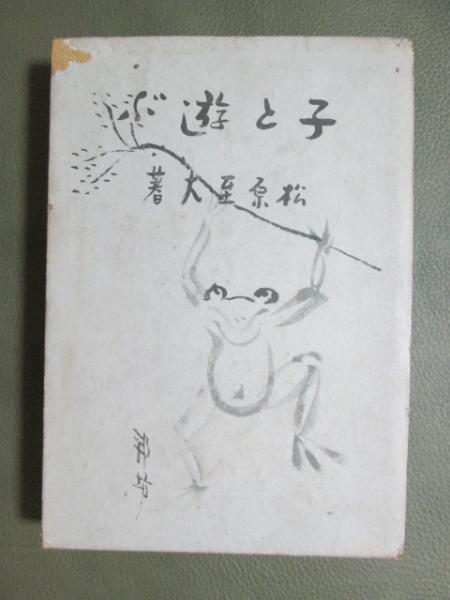 子と遊ぶ
松原至大著